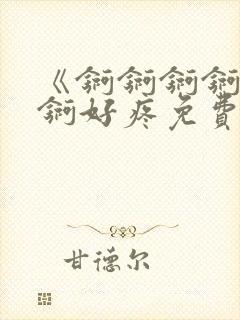 《锕锕锕锕
锕好疼免費
甘德尔